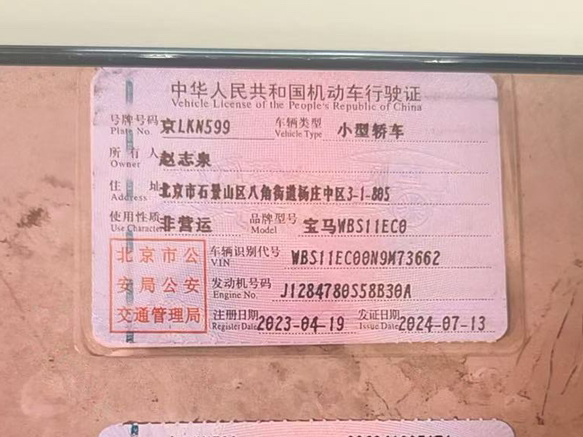 中华人民共和国机动车行驶证
Vehicle License of the People's Republic of China
号牌号码 京LKN599 车辆类型 小型轿车
Plate No. Vehicle Type
所有人 赵志泉
Owner
住址 北京市石景山区八角街道杨庄中区3-1-805
Address
使用性质 非营运 品牌型号 宝马WBS11EC0
Use Character Model
北京市公安局公安交通管理局
车辆识别代号 WBS11EC00N9M73662
VIN
发动机号码 J1284780S58B30A
Engine No.
注册日期 2023-04-19 发证日期 2024-07-13
Register Date Issue Date